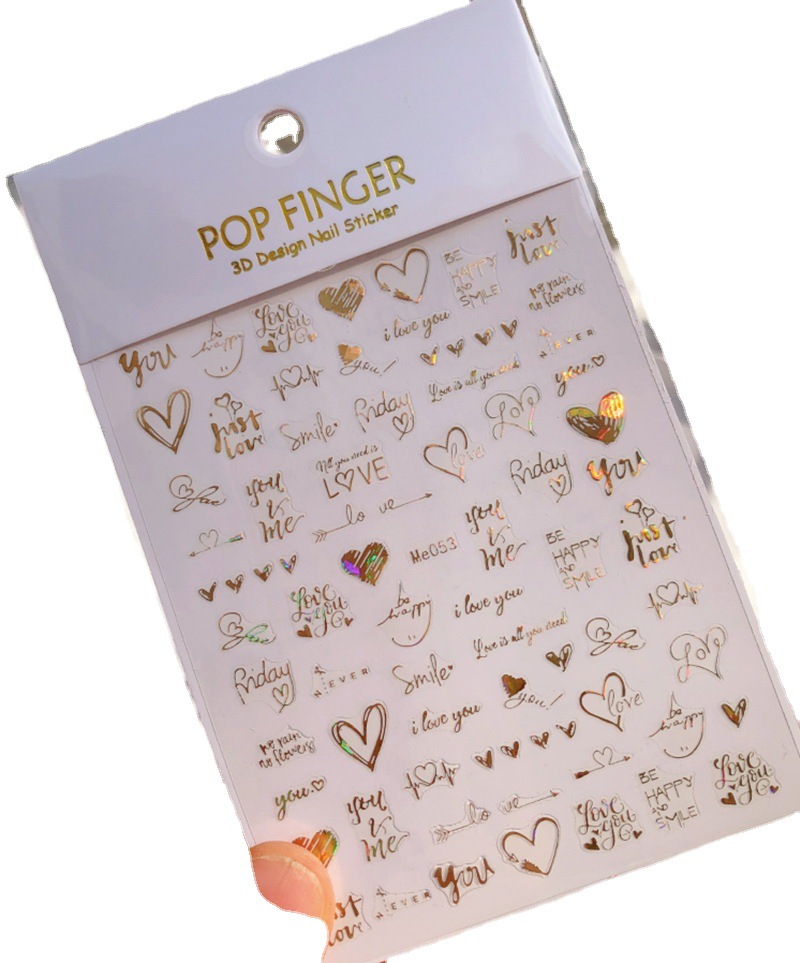 POP FINGER
3D Design Nail Sticker
just
love
BE
HAPPY
AND
SMILE
no rain
no flowers
Love
you
i love you
be
happy
you
you!
NEVER
Love is all you need
you
just
love
Smile
Friday
Love
All you need is
LOVE
love
you
&
me
Friday
you
lo ve
Me053
you
&
me
BE
HAPPY
AND
SMILE
just
love
Love
you
be
happy
i love you
Love is all you need!
Friday
NEVER
Smile
you!
love
Love
no rain
no flowers
i love you
be
happy
you
you
&
me
lo ve
Love
you
BE
HAPPY
AND
SMILE
Love
you
just
love
NEVER
you